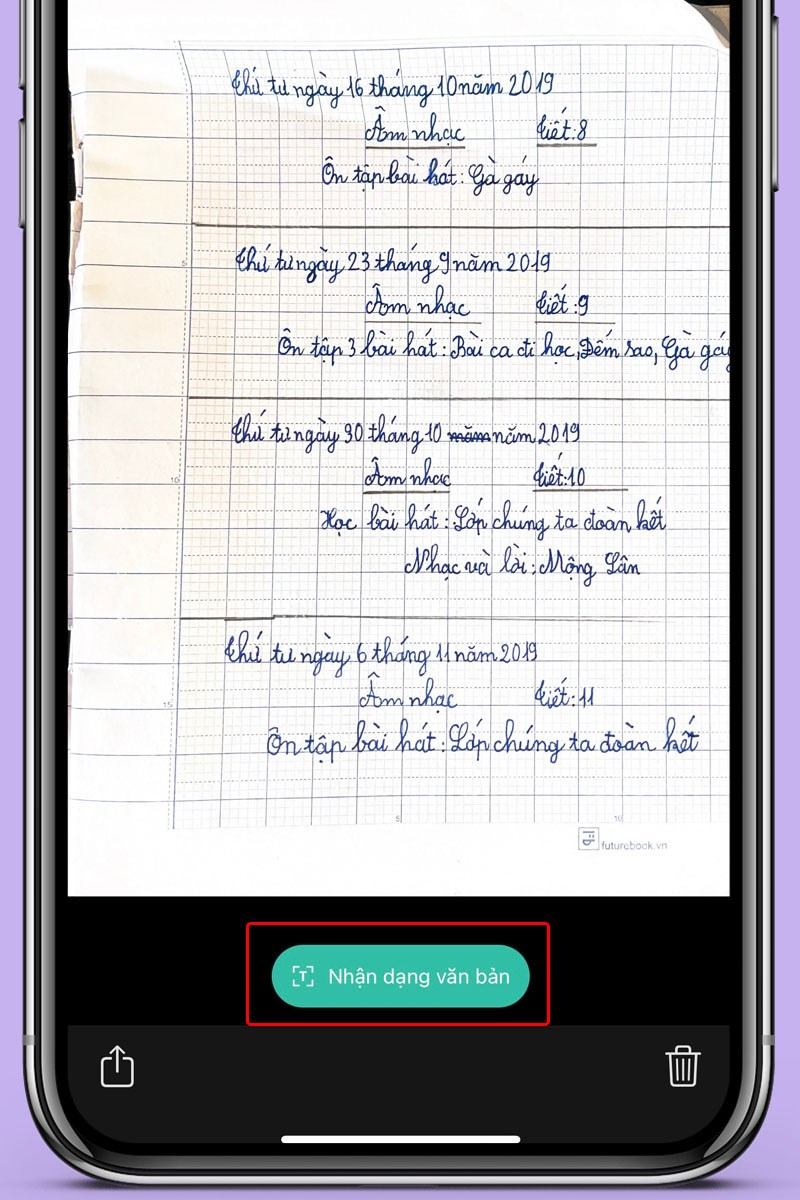 Thứ tư ngày 16 tháng 10 năm 2019
Âm nhạc Tiết: 8
Ôn tập bài hát: Gà gáy
5
Thứ tư ngày 23 tháng 9 năm 2019
Âm nhạc Tiết: 9
Ôn tập 3 bài hát: Bài ca đi học, Đếm sao, Gà gáy
Thứ tư ngày 30 tháng 10 năm năm 2019
10
Âm nhạc Tiết: 10
Học bài hát: Lớp chúng ta đoàn kết
Nhạc và lời: Mộng Lân
Thứ tư ngày 6 tháng 11 năm 2019
15
Âm nhạc Tiết: 11
Ôn tập bài hát: Lớp chúng ta đoàn kết
5 10
futurebook.vn
Nhận dạng văn bản